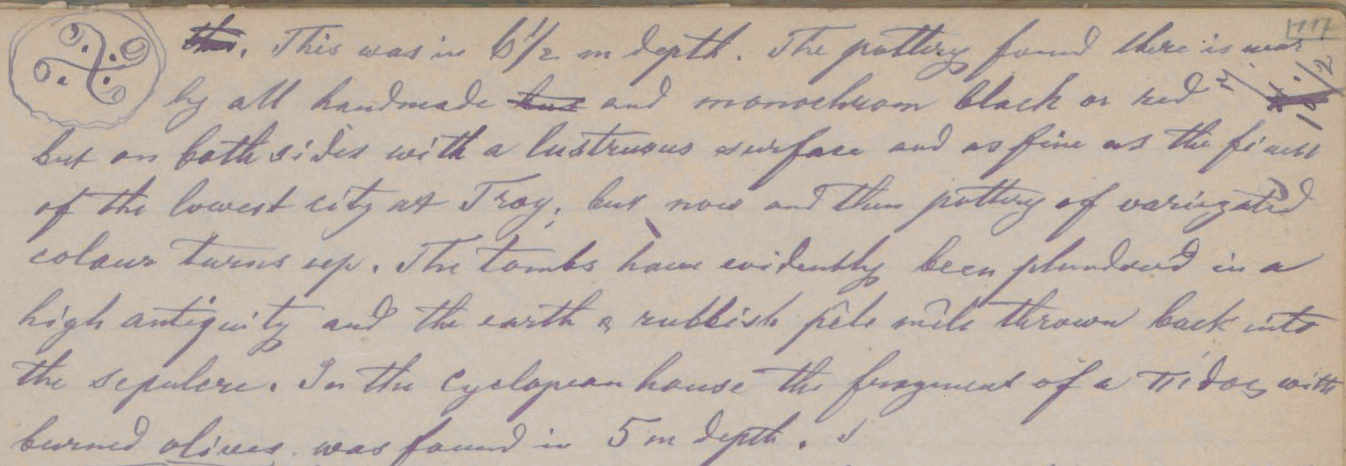 117
this. This was in 6 1/2 m depth. The pottery found there is near
ly all handmade but and monochrom black or red
but on both sides with a lustruous surface and as fine as the finest
of the lowest city at Troy, but now and then pottery of variegated
colour turns up. The tombs have evidently been plundered in a
high antiquity and the earth & rubbish pêle mêle thrown back into
the sepulcre. In the cyclopean house the fragment of a πίθος with
burned olives was found in 5 m depth. I